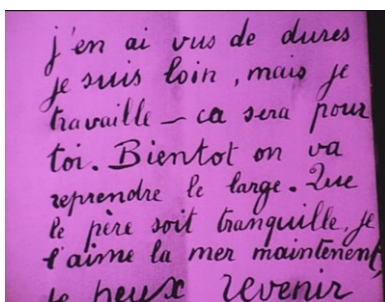 j'en ai vus de dures
je suis loin, mais je
travaille - ca sera pour
toi. Bientot on va
reprendre le large. Que
le père soit tranquille, je
l'aime la mer maintenent,
je peux revenir